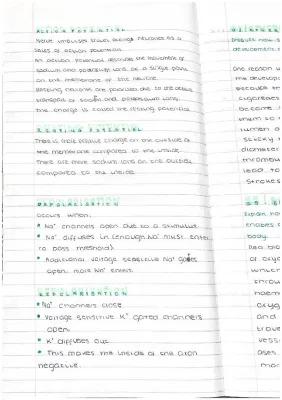 ACTION POTENTIAL
Nerve impulses travel along neurones as a
series of action potentials
An action potential describes the movement of
sodium and potassium ions at a single point
on the membrane of the neurone.
Resting neurones are polarised due to the active
transport of sodium and potassium ions,
this charge is called the resting potential
RESTING POTENTIAL
There is more positive charge on the outside of
the membrane compared to the inside.
There are more sodium ions on the outside
compared to the inside.
DEPOLARISATION
occurs when:
• Na⁺ channels open due to a stimulus
• Na⁺ diffuses in (enough Na⁺ must enter
to pass threshold)
• Additional voltage sensitive Na⁺ gates
open, more Na⁺ enters.
REPOLARISATION
• Na⁺ channels close
• Voltage sensitive K⁺ gated channels
open.
• K⁺ diffuses out
• This makes the inside of the axon
negative.
Discuss how
development
One reason
the develop
because
cigarettes
become
them to
lumen
sticky
diameter
thrombu
lead to
strokes
Explain how
enables
body.
of oxy
which
throu
haem
oxyg
and
trave
vess